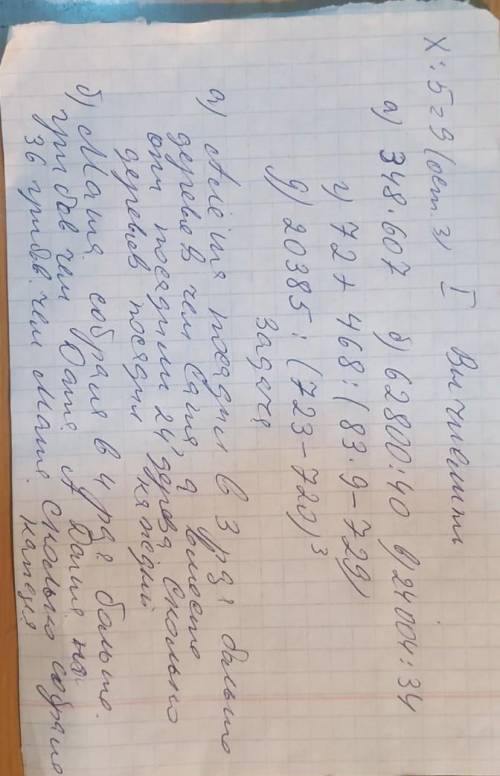 I Вычислить
X : 5 = 9 (ост. 3)
а) 348 · 607 б) 62800 : 40 в) 24004 : 34
г) 72 + 468 : (83 · 9 - 729)
д) 20385 : (723 - 720)³
Задача
а) Алёша посадил в 3 раза больше
деревьев чем Саша, а вместе
они посадили 24 дерева Сколько
деревьев посадил каждый
б) Маша собрала в 4 раза больше
грибов чем Даша. А Даша на
36 грибов. чем Маша. Сколько собрала